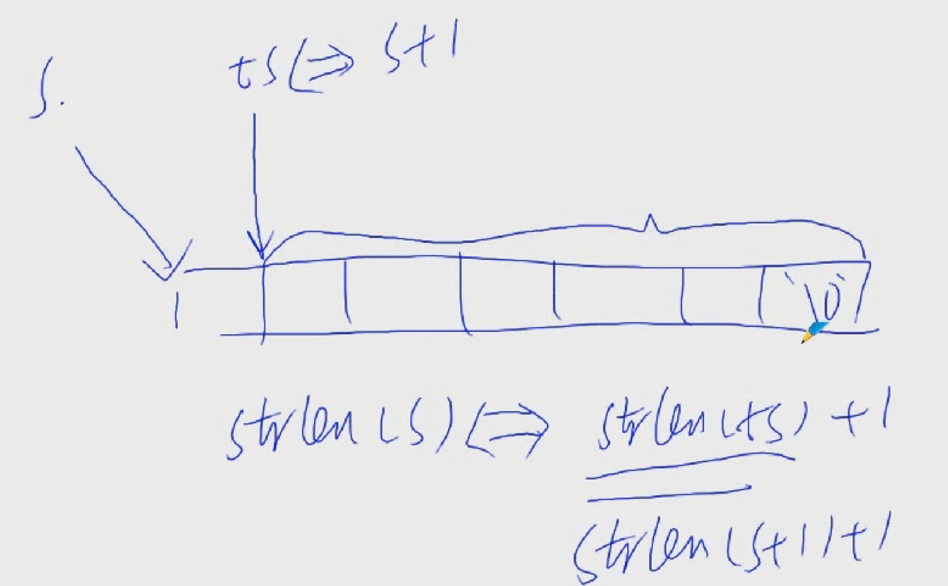 s.
ts⇔ s+1
'\0'
strlen(s) ⇔ strlen(ts) +1
strlen(s+1)+1